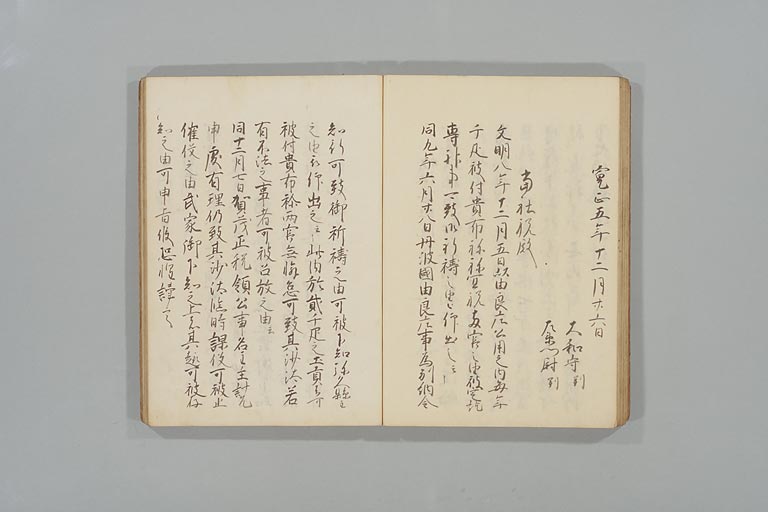 寛正五年十二月廿六日
大和守判
左衛門尉判
当社祝殿
文明八年十二月五日以由良庄公用之内毎年
千疋被付貴布祢祢宜祝両官之由被定訖
専神事可致御祈祷之由被仰出之云々
同九年六月廿八日丹波國由良庄事為別納令
知行可致御祈祷之由可被下知弥久縣主
之由被仰出之云々此内於貳千疋之土貢者可
被付貴布祢両官無懈怠可致其沙汰若
有不法之事者可被召放之由云々
同十二月七日賀茂正税領公事名主等
申處有理仍致其沙汰臨時課役可被止
催促之由武家御下知之上者其趣可被存
知之由可申旨候恐惶謹言